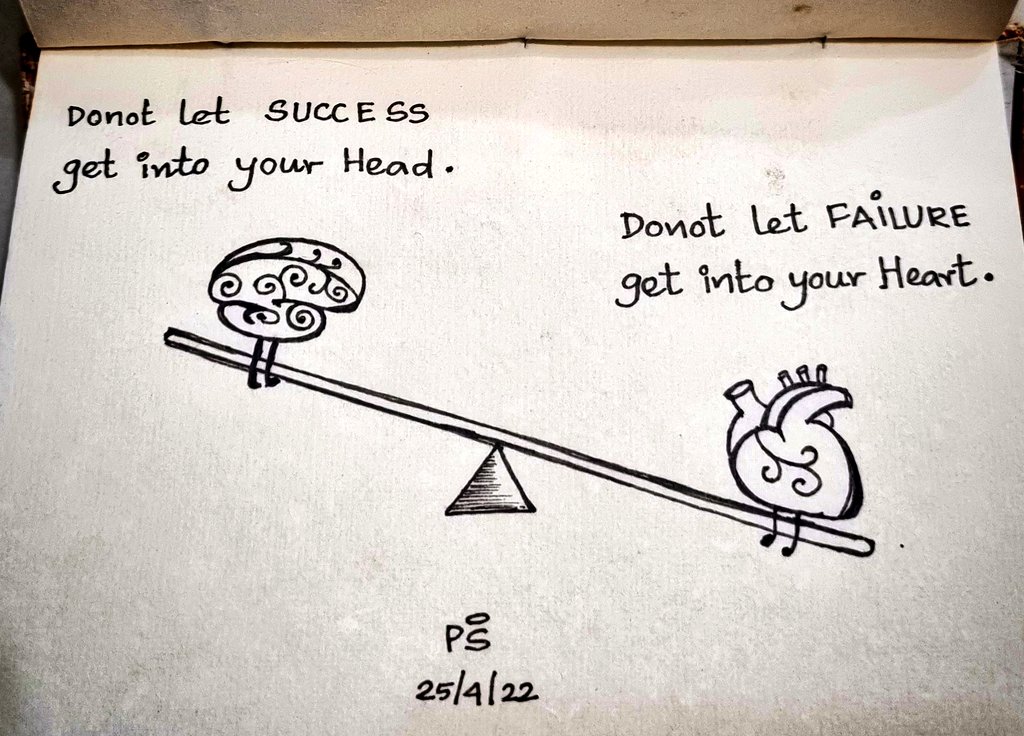 Donot let SUCCESS
get into your Head.
Donot let FAiLURE
get into your Heart.
PS
25/4/22